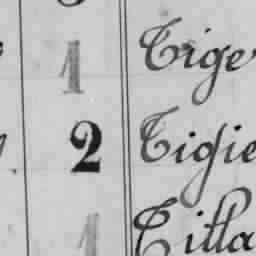 1 Tige
2 Tigie
1 Titta